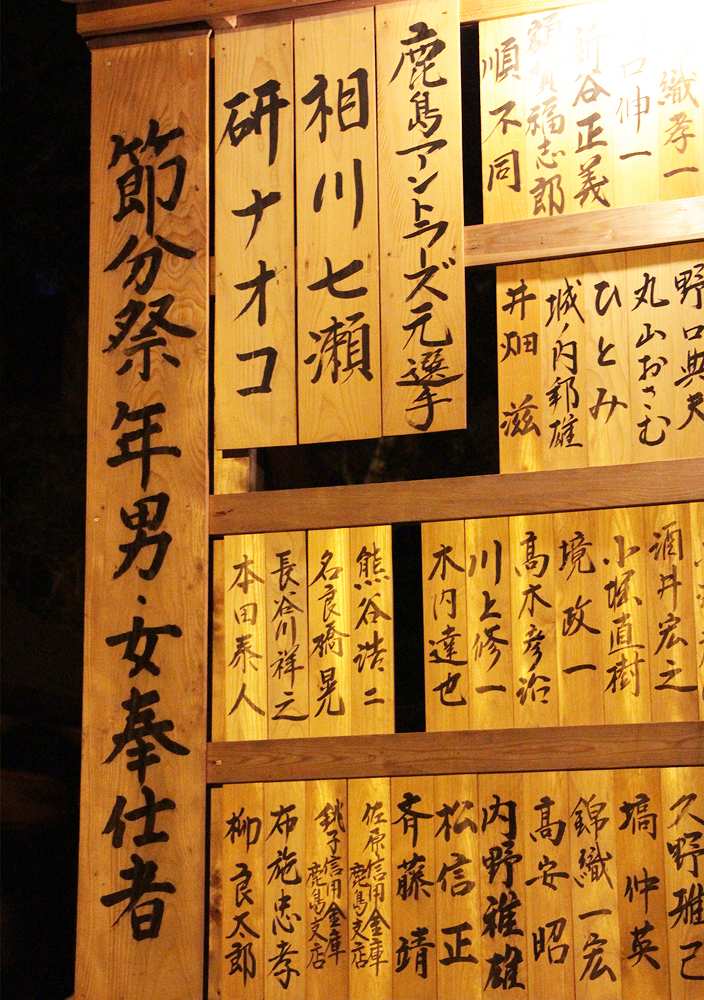 節分祭年男・女奉仕者
鹿島アントラーズ元選手
相川七瀬
研ナオコ
織孝一
口伸一
新谷正義
額賀福志郎
順不同
野口典夫
丸山おさむ
ひとみ
城ノ内邦雄
井畑滋
酒井宏之
小堀直樹
境政一
高木彦治
川上修一
木内達也
熊谷浩二
名良橋晃
長谷川祥之
本田泰人
久野雅己
塙仲英
錦織一宏
高安昭
内野雅雄
松信正
斉藤靖
佐原信用金庫鹿島支店
銚子信用金庫鹿島支店
布施忠孝
柳良太郎